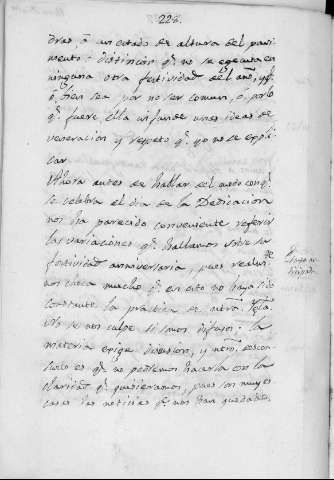 228.
dras, ò un estado de altura del pavi-
mento: distincion qe. no se egecuta en
ninguna otra festividad del año, y qe.
ò bien sea por no ser comun, ò por lo
qe. fuere ella infunde unas ideas de
veneracion y respeto qe. yo no se expli-
car.
Ahora antes de hablar del modo con qe.
se celebra el dia de la Dedicacion
nos ha parecido conveniente referir
las variaciones qe. hallamos sobre su
festividad anniversaria, pues
nos consta mucho qe. en esto no haya sido
constante la practica de ntra. Yglã.
No se nos culpe si somos difusos: la
materia exige discusion, y ntro. descon-
suelo es qe. no podremos hacerla con la
claridad qe. quisieramos, pues son muy es-
casas las noticias qe. nos han quedado.